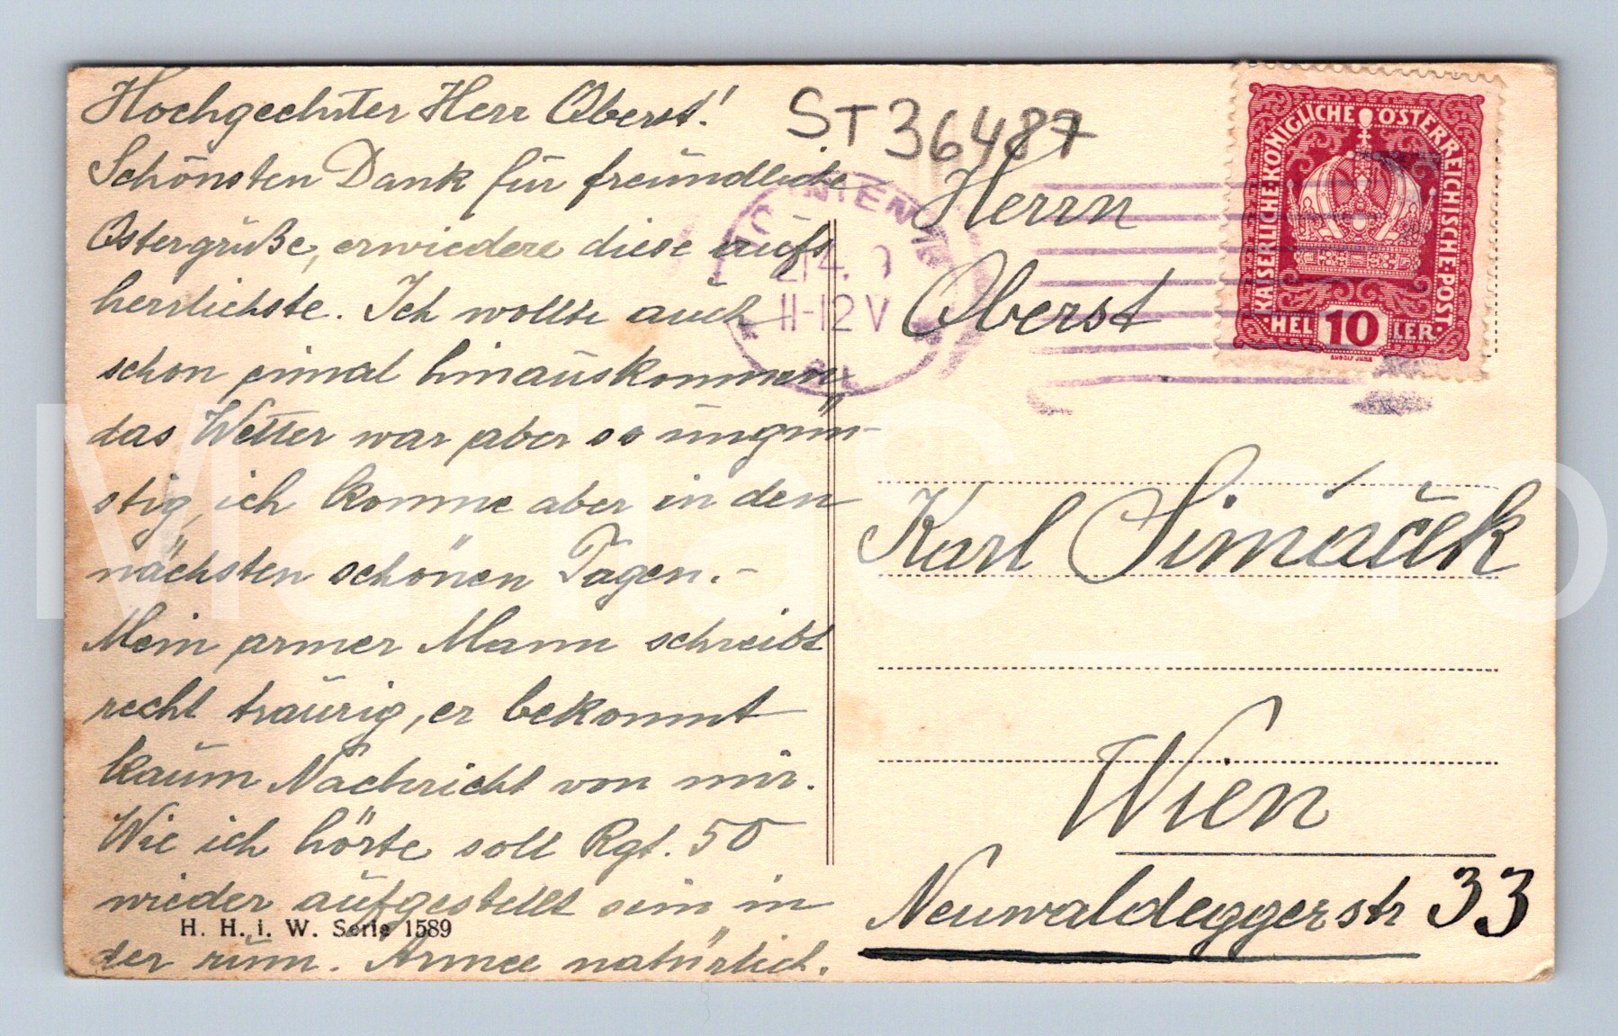 Hochgeehrter Herr Oberst!
Schönsten Dank für freundliche
Ostergrüße, erwiedere diese aufs
herrlichste. Ich wollte auch
schon einmal hinauskommen,
das Wetter war aber so ungün-
stig, ich komme aber in den
nächsten schönen Tagen.-
Mein armer Mann schreibt
recht traurig, er bekommt
kaum Nachricht von mir.
Wie ich hörte soll Rgt. 50
wieder aufgestellt sein in
der rum. Armee natürlich.
H. H. i. W. Serie 1589
ST36487
11-12V
KAISERLICHE KÖNIGLICHE ÖSTERREICHISCHE POST
HEL 10 LER
RUDOLF JUNK
Herrn
Oberst
Karl Šimáček
Wien
Neuwaldeggerstr 33